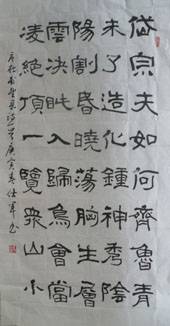 岱宗夫如何齊魯青
未了造化鍾神秀陰
陽割昏曉蕩胸生層
雲決眥入歸鳥會當
凌絕頂一覽衆山小
庚寅春